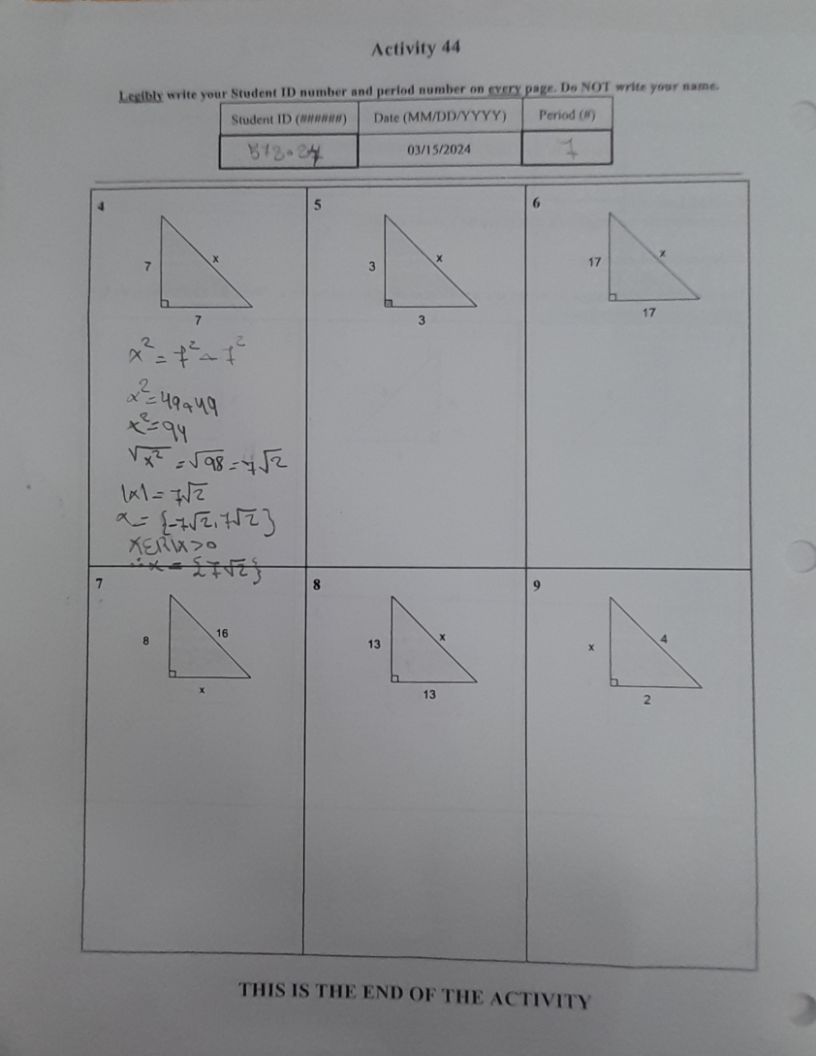 Activity 44
Legibly write your Student ID number and period number on every page. Do NOT write your name.
Student ID (######) Date (MM/DD/YYYY) Period (#)
03/15/2024 7
4 5 6
7 x 3 x 17 x
7 3 17
x² = 7² ~ 7²
x² = 49+49
x² = 94
√x² = √98 = 7√2
|x| = 7√2
x = {-7√2, 7√2}
x∈ℝ|x>0
∴ x = {7√2}
7 8 9
8 16 13 x x 4
x 13 2
THIS IS THE END OF THE ACTIVITY